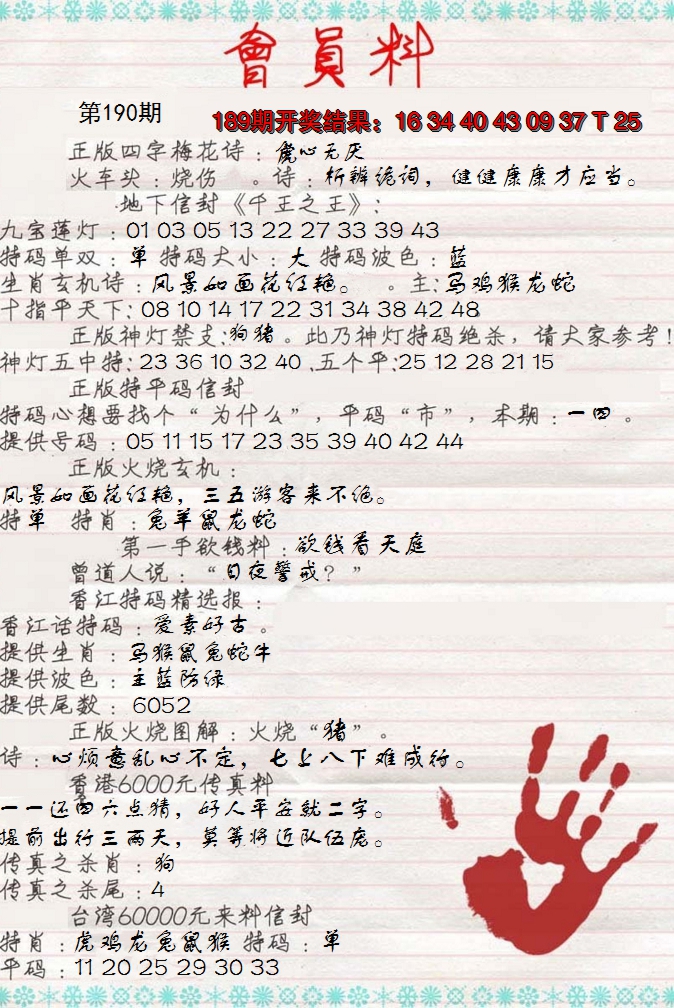 會員料
第190期
189期开奖结果：16 34 40 43 09 37 T 25
正版四字梅花诗：虎心无厌
火车头：烧伤 。诗：析辨诡词，健健康康才应当。
地下信封《千王之王》：
九宝莲灯：01 03 05 13 22 27 33 39 43
特码单双：单 特码大小：大 特码波色：蓝
生肖玄机诗：风景如画花红艳。 。主：马鸡猴龙蛇
十指平天下：08 10 14 17 22 31 34 38 42 48
正版神灯禁支：狗猪。此乃神灯特码绝杀，请大家参考！
神灯五中特：23 36 10 32 40 .五个平：25 12 28 21 15
正版特平码信封
特码心想要找个“为什么”，平码“市”，本期：一四。
提供号码：05 11 15 17 23 35 39 40 42 44
正版火烧玄机：
风景如画花红艳，三五游客来不绝。
特单 特肖：兔羊鼠龙蛇
第一手欲钱料：欲钱看天庭
曾道人说：“日夜警戒？”
香江特码精选报：
香江话特码：爱素好古。
提供生肖：马猴鼠兔蛇牛
提供波色：主蓝防绿
提供尾数：6052
正版火烧图解：火烧“猪”。
诗：心烦意乱心不定，七上八下难成行。
香港6000元传真料
一一还四六点猜，好人平安就二字。
提前出行三两天，莫等将近队伍庞。
传真之杀肖：狗
传真之杀尾：4
台湾60000元来料信封
特肖：虎鸡龙兔鼠猴 特码：单
平码：11 20 25 29 30 33